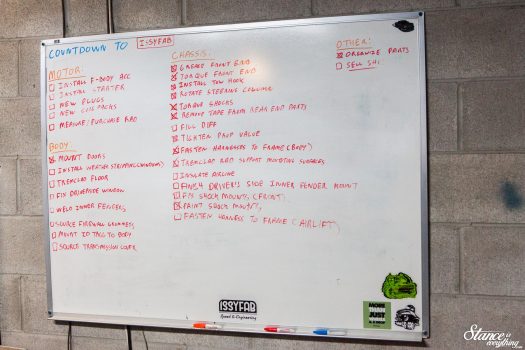 COUNTDOWN TO ISSYFAB
MOTOR:
INSTALL F-BODY ACC
INSTALL STARTER
NEW PLUGS
NEW COIL PACKS
MEASURE/PURCHASE RAD
BODY:
MOUNT DOORS
INSTALL WEATHER STRIPPING (WINDOWS)
TREMCLAD FLOOR
FIX DRIVERSIDE WINDOW
WELD INNER FENDERS
SOURCE FIREWALL GROMMETS
MOUNT ID TAG TO BODY
SOURCE TRANSMISSION COVER
CHASSIS:
GREASE FRONT END
TORQUE FRONT END
INSTALL TOW HOOK
ROTATE STEERING COLUMN
TORQUE SHOCKS
REMOVE TAPE FROM REAR END PARTS
FILL DIFF
TIGHTEN PROP VALVE
FASTEN HARNESSES TO FRAME (BODY)
TREMCLAD RAD SUPPORT MOUNTING SURFACES
INSULATE AIRLINE
DRIVER'S SIDE INNER FENDER MOUNT
FIX SHOCK MOUNTS (FRONT)
PAINT SHOCK MOUNTS
FASTEN HARNESS TO FRAME (AIRLIFT)
OTHER:
ORGANIZE PARTS
SELL SHI
ISSYFAB
Speed & Engineering
MORE
THAN
JUST
Stance is everything